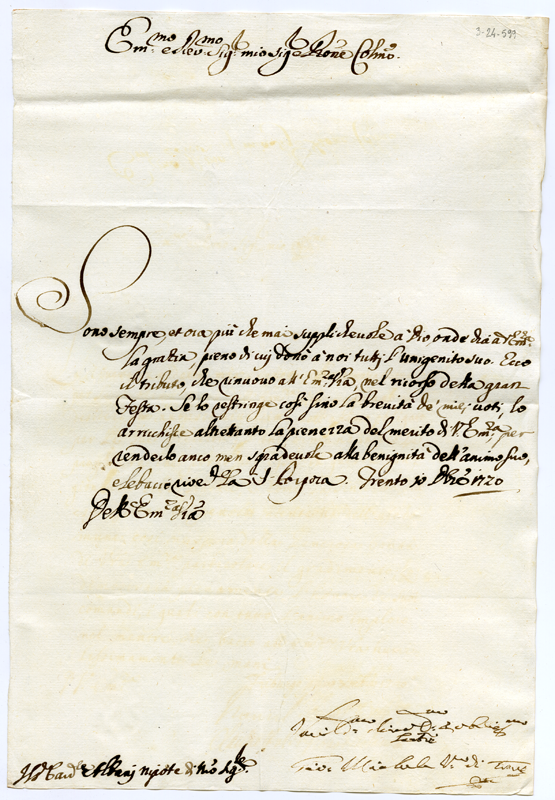 3-24-599
Em.mo e Rev.mo Sig.r mio Sig.r P.rone Col.mo
Sono sempre, et ora più che mai supplichevole a Dio onde dia a V. Em.za
la grazia, pieno di cui donò a noi tutti l'unigenito suo. Ecco
il tributo, che rinuovo all'Em.za V.ra, nel ricorso della gran
Festa. Se lo restringe così sino la brevità de' miei voti, lo
arrichisce altrettanto la pienezza del merito di V. Em.za, per
renderlo anco men sgradevole alla benignità dell'animo suo,
e le bacio la S. Porpora. Trento 10 Xbre 1720
Dell'Em.za V.ra
Card.le Albani nipote di N.ro Sig.re